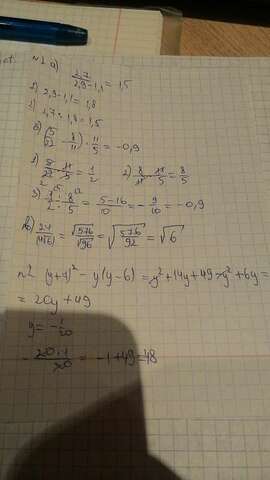 №1 а)
2,7 / 2,9-1,1 = 1,5
1) 2,9-1,1 = 1,8
2,7 : 1,8 = 1,5
(5/22 - 8/11) · 11/5 = -0,9
= 1/2
2) 8/11 · 11/5 = 8/5
3) 1/2 - 8/5 = 5-16/10 = -9/10 = -0,9
в) 24/(4√6) = √576/√96 = √576/92 = √6
№2 (y+7)² - y(y-6) = y² + 14y + 49 - y² + 6y =
= 20y + 49
y = -1/20
- 20·1/20 = -1+49=48